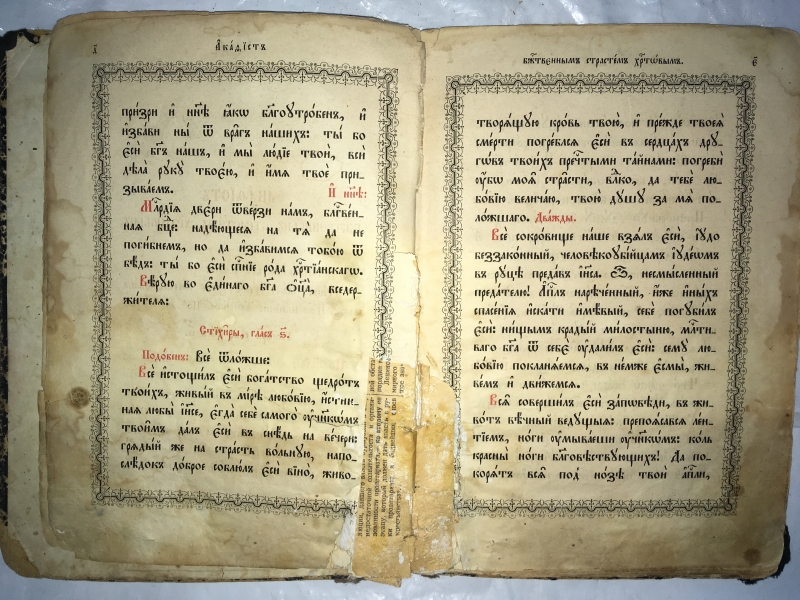 І҃ А҆ка́ѳїстъ
призри и҆ ны́нѣ ꙗ҆́кѡ бл҃гоꙋтро́бенъ, и҆
и҆зба́ви ны̀ ѿ вра̑гъ на́шихъ: ты́ бо
є҆сѝ бг҃ъ на́шъ, и҆ мы̀ лю́дїе твоѝ, всѝ
дѣла̀ рꙋкꙋ̀ твоє́ю, и҆ и҆́мѧ твоѐ при-
зыва́емъ. И҆ ны́нѣ:
Млⷭ҇рдїѧ две́ри ѿве́рзи на́мъ, блгⷭ҇ве́н-
наѧ бцⷣе: надѣ́ющїесѧ на тѧ̀ да не
поги́бнемъ, но да и҆зба́вимсѧ тобо́ю ѿ
бѣ́дъ: ты́ бо є҆сѝ сп҃се́нїе ро́да хрⷭ҇тїа́нскагѡ.
Вѣ́рꙋю во є҆ди́наго бг҃а ѻ҆ц҃а̀, вседер-
жи́телѧ:
Стїхи̑ры, гла́съ ѕ҃.
Подо́бенъ: Всѐ ѿло́жше:
Всѐ и҆стощи́лъ є҆сѝ бога́тство щедро́тъ
твои́хъ, живы́й въ мі́рѣ любо́вїю, и҆́стин-
наѧ любы̀ і҆и҃се, є҆гда̀ себѐ самого̀ ᲂу҆чн҃кѡ́мъ
твои̑мъ да́лъ є҆сѝ въ снѣ́дь на ве́чери:
грѧды́й же на стра́сть во́льнꙋю, напо-
слѣ́докъ до́брое соблю́лъ є҆сѝ вїно̀, живо-
бжⷭ҇твєннымъ страстє́мъ хрⷭ҇тѡ́вымъ. є҃
творѧ́щꙋю кро́вь твою̀, и҆ пре́жде твоеѧ̀
сме́рти погре́блсѧ є҆сѝ въ сердца́хъ дрꙋ-
гѡ́въ твои́хъ пречⷭ҇тыми та́йнами: погребѝ
ᲂу҆̀бо моѧ̑ стра̑сти, влⷣко, да тебѐ лю-
бо́вїю велича́ю, твою̀ дꙋ́шꙋ за мѧ̀ по-
ло́жшаго. Два́жды.
Всѐ сокро́вище на́ше взѧ́лъ є҆сѝ, і҆ꙋ́до
беззако́нный, человѣкоꙋбі́йцамъ і҆ꙋде́ѡмъ
въ рꙋ́цѣ преда́въ і҆и҃са. Ѽ, несмы́сленный
преда́телю! А҆пⷭ҇лъ нарече́нный, и҆́же и҆ны́хъ
спасе́нїѧ и҆ска́ти и҆мѣ́вый, себѐ погꙋби́лъ
є҆сѝ: ни́щымъ кра́дый ми́лостыню, млⷭ҇ти-
ваго бг҃а ѿ себє̀ ᲂу҆дали́лъ є҆сѝ: семꙋ̀ лю-
бо́вїю поклана́емсѧ, въ не́мже є҆смы̀, жи-
ве́мъ и҆ дви́жемсѧ.
Всѧ̑ соверши́лъ є҆сѝ за́пѡвѣди, въ жи-
во́тъ вѣ́чный ведꙋ́щыѧ: препоѧ́савсѧ ле́н-
тїемъ, но́ги ᲂу҆мыва́еши ᲂу҆чн҃кѡ́мъ: ко́ль
кра́сны но́ги бл҃говѣствꙋ́ющихъ! Да по-
корѧ́тъ всѧ̑ под̾ но́зѣ твоѝ а҆пⷭ҇ли,